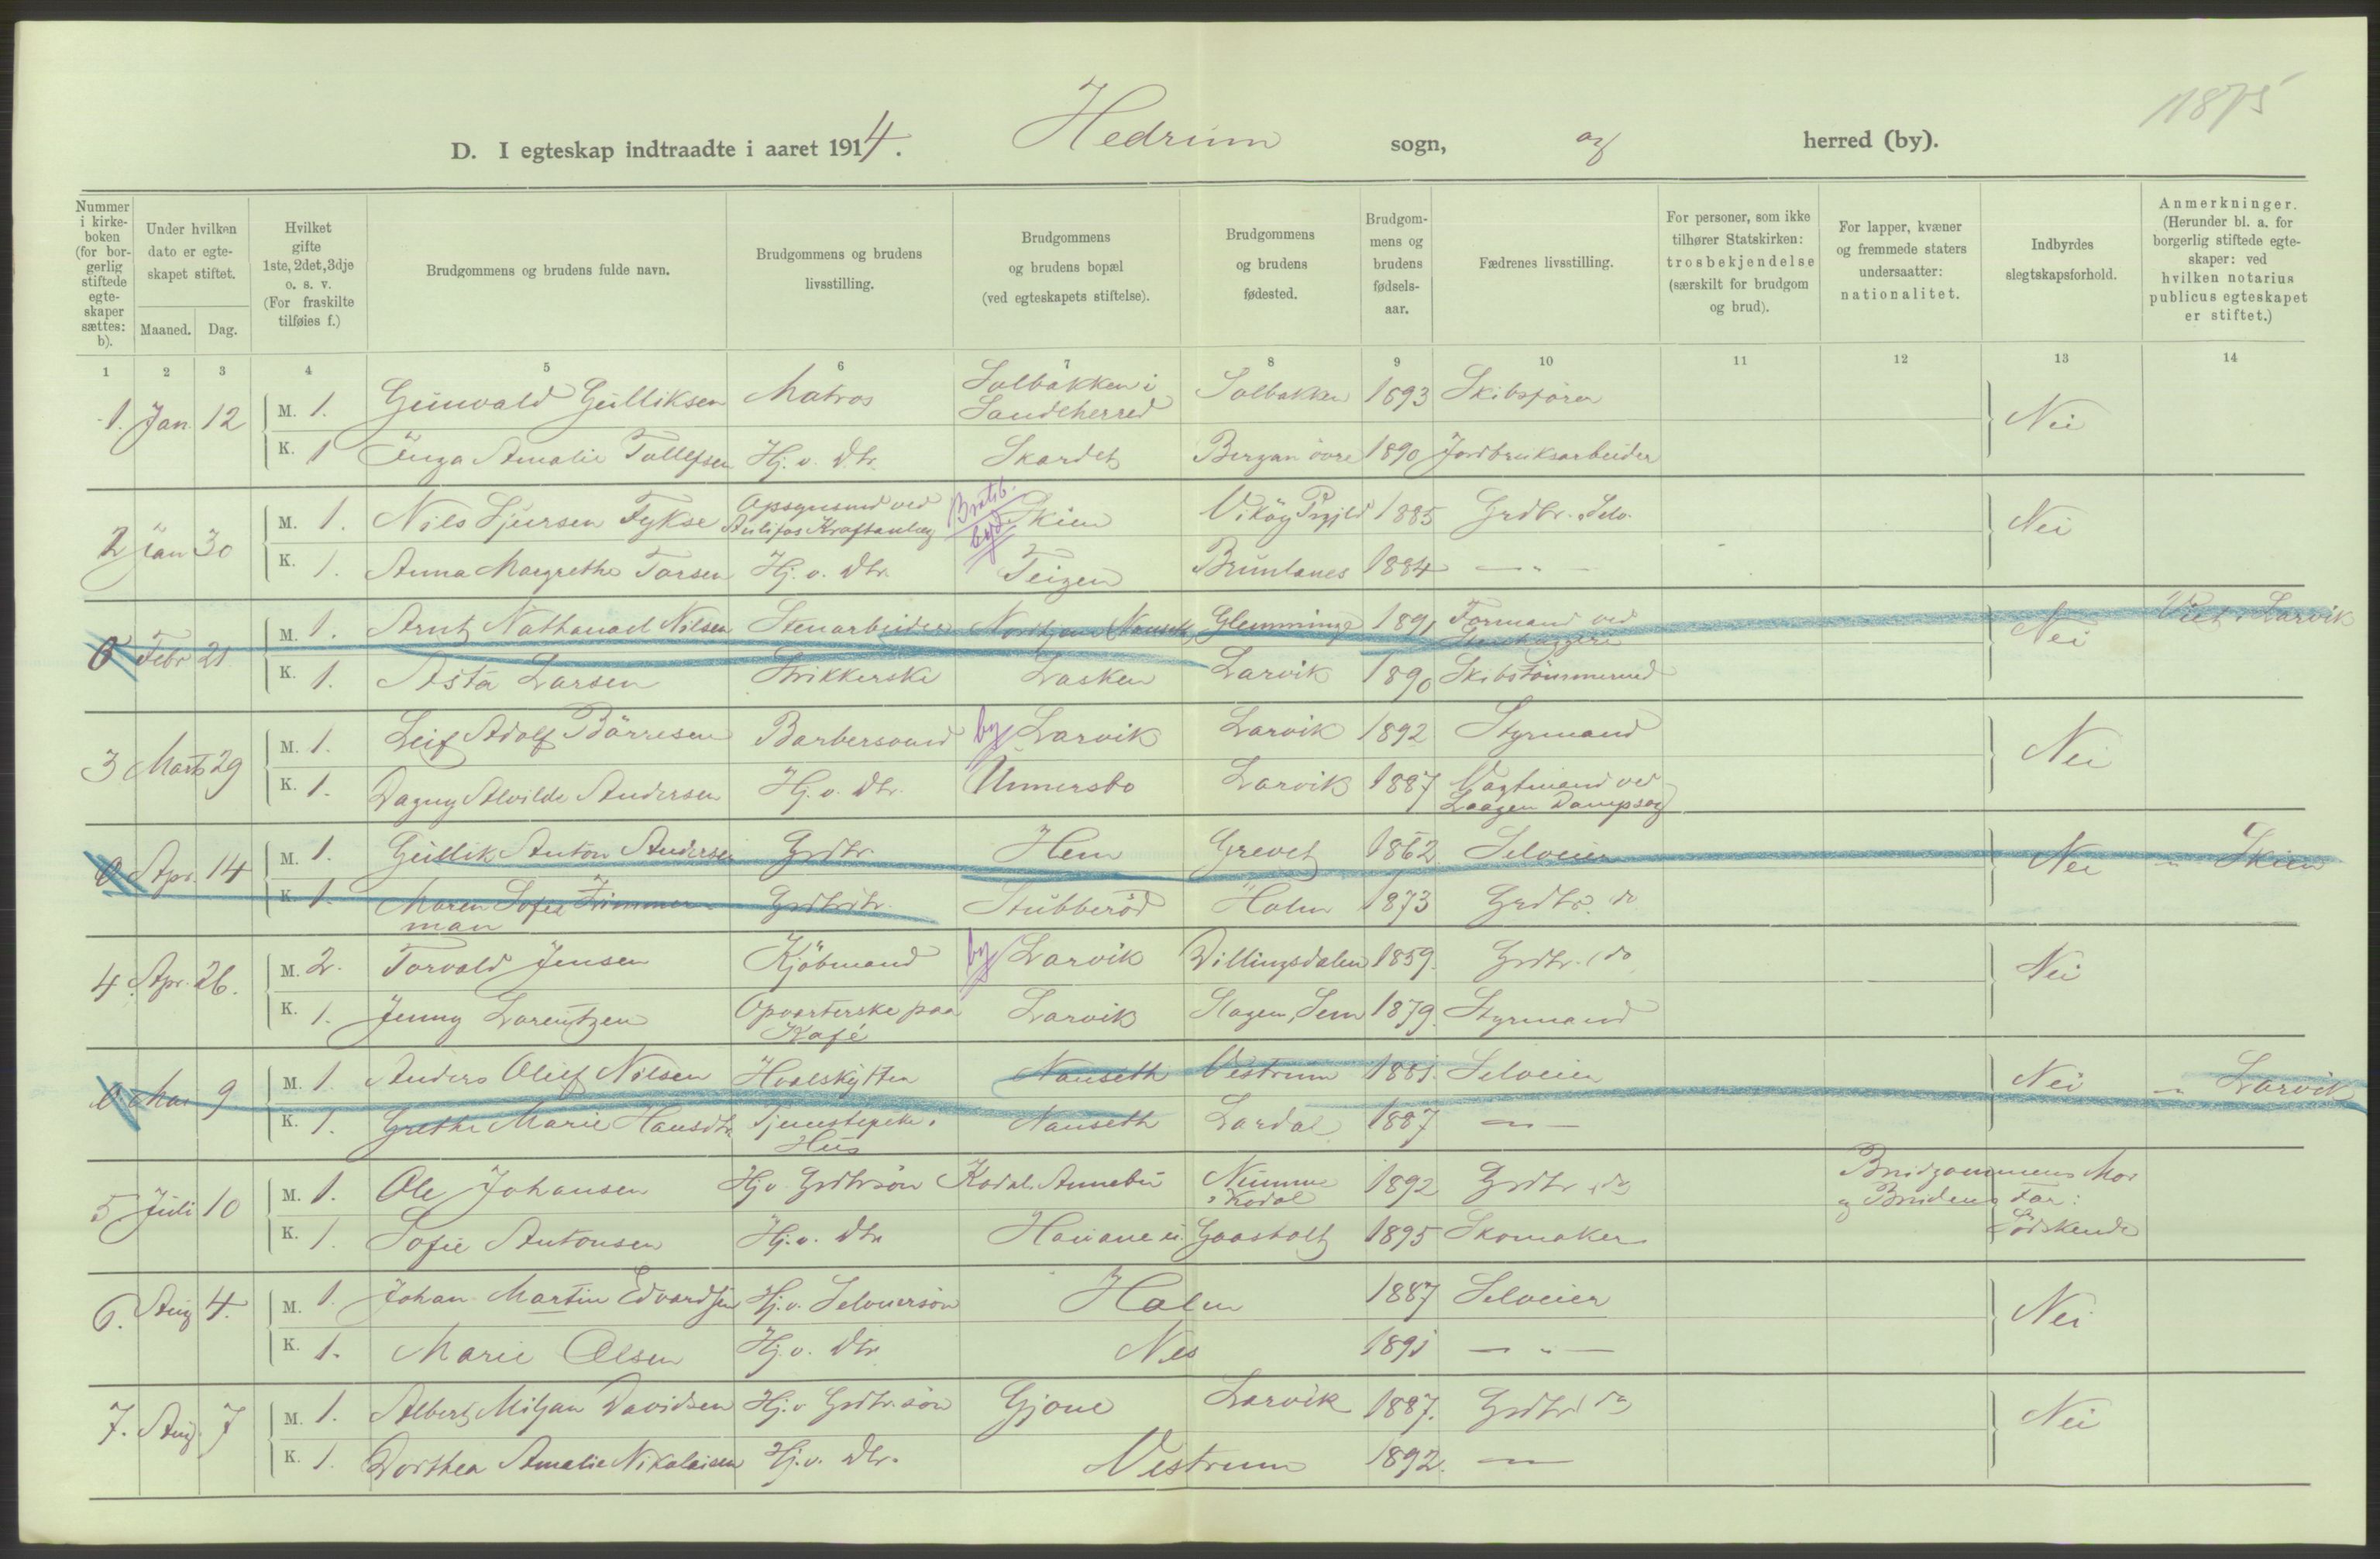 11875
D. I egteskap indtraadte i aaret 1914. Hedrum sogn, og herred (by).
Nummer i kirkeboken (for borgerlig stiftede egteskaper sættes: b).
Under hvilken dato er egteskapet stiftet.
Maaned. Dag.
Hvilket gifte 1ste, 2det, 3dje o. s. v. (For fraskilte tilføies f.)
Brudgommens og brudens fulde navn.
Brudgommens og brudens livsstilling.
Brudgommens og brudens bopæl (ved egteskapets stiftelse).
Brudgommens og brudens fødested.
Brudgommens og brudens fødselsaar.
Fædrenes livsstilling.
For personer, som ikke tilhører Statskirken: trosbekjendelse (særskilt for brudgom og brud).
For lapper, kvæner og fremmede staters undersaatter: nationalitet.
Indbyrdes slegtskapsforhold.
Anmerkninger. (Herunder bl. a. for borgerlig stiftede egteskaper: ved hvilken notarius publicus egteskapet er stiftet.)
1 2 3 4 5 6 7 8 9 10 11 12 13 14
1. Jan. 12 M. 1. Gunvald Gulliksen Matros Solbakken i Sandeherred Solbakken 1893 Skibsfører Nei
K. 1 Inga Amalie Tollefsen Hj. v. Dtr. Skardet Bergan övre 1890 Jordbruksarbeider
2 Jan 30 M. 1. Nils Sjursen Fykse Opsynsmd ved Kraftanlæg Skien Vikøy Prgjld 1885 Grdbr. Selv. Nei
K. 1. Anna Margrethe Torsen Hj. v. Dtr. Teigen Brunlanes 1884 — " —
0 Febr 21 M. 1. Arnt Nathanael Nilsen Stenarbeider Nanseth Glemminge 1891 Formand ved Stenhuggeri Nei Viet i Larvik
K. 1. Asta Larsen Strikkerske Lasken Larvik 1890 Skibstömmermd
3 Marts 29 M. 1. Leif Adolf Börresen Barbersvend by Larvik Larvik 1892 Styrmand Nei
K. 1. Dagny Alvilde Andersen Hj. v. Dtr. Unnersbo Larvik 1887 Vagtmand ved Laagen Dampsag
0 Apr. 14 M. 1. Gullik Anton Andersen Grdbr. Hem Grevet 1862 Selveier Nei " Skien
K. 1. Maren Sofie Zimmerman Grdbrdtr. Stubberöd Holm 1873 Grdbr. do
4. Apr. 26. M. 2. Torvald Jensen Kjöbmand by Larvik Dillingsdalen 1859. Grdbr. do Nei
K. 1. Jenny Lorentzen Opvarterske paa Kafé Larvik Slagen, Sem 1879. Styrmand
0 Mai 9 M. 1. Anders Oluf Nilsen Hvalskytter Nanseth Vestrum 1881. Selveier Nei " Larvik
K. 1. Grethe Marie Hansdtr Tjenestepike. Hus Nanseth Lardal 1887 — " —
5 Juli 10 M. 1. Ole Johansen Hj. v. Grdbrsön Kodal. Annebu i Kodal 1892 Grdbr do Brudgommens Mor og Brudens Far: Södskende
K. 1. Sofie Antonsen Hj. v. Dtr Gaasholt 1895 Skomaker
6. Aug 4. M. 1. Johan Martin Edvardsen Hj. v. Selveiersön Holm 1887 Selveier Nei
K. 1. Marie Olsen Hj. v. Dtr Nes 1891 — " —
7. Aug. 7 M. 1. Albert Davidsen Hj. v. Grdbr.sön Gjone Larvik 1887. Grdbr. do Nei
K. 1. Dorthea Amalie Nikolaisen Hj. v. Dtr. Vestrum 1892. — " —